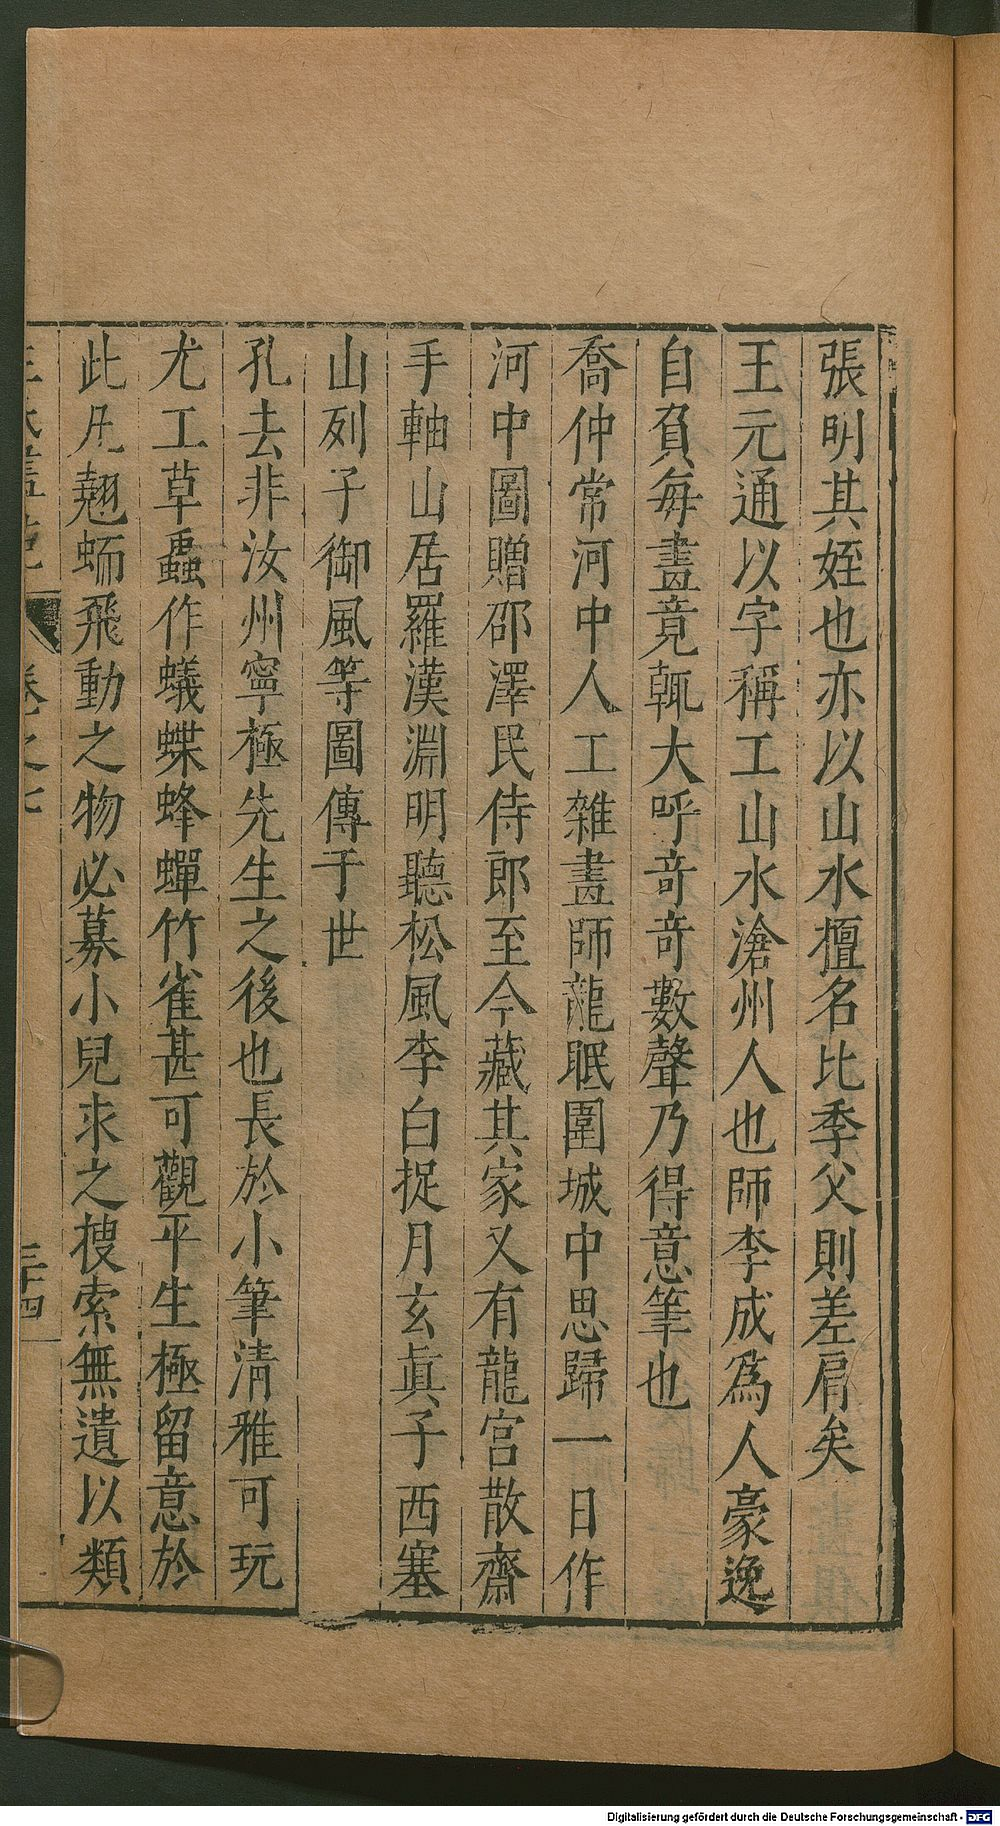 張明其姪也亦以山水檀名比季父則差肩矣
王元通以字稱工山水滄州人也師李成爲人豪逸
自負每畫竟輒大呼奇奇數聲乃得意筆也
喬仲常河中人工雜畫師龍眠圍城中思歸一日作
河中圖贈邵澤民侍郎至今藏其家又有龍宮散齋
手軸山居羅漢淵明聽松風李白捉月玄眞子西塞
山列子御風等圖傳于世
孔去非汝州寧極先生之後也長於小筆清雅可玩
尤工草蟲作蟻蝶蜂蟬竹雀甚可觀平生極留意於
此凡翹蝡飛動之物必募小兒求之搜索無遺以類
卷之七
三十四
Digitalisierung gefördert durch die Deutsche Forschungsgemeinschaft - DFG